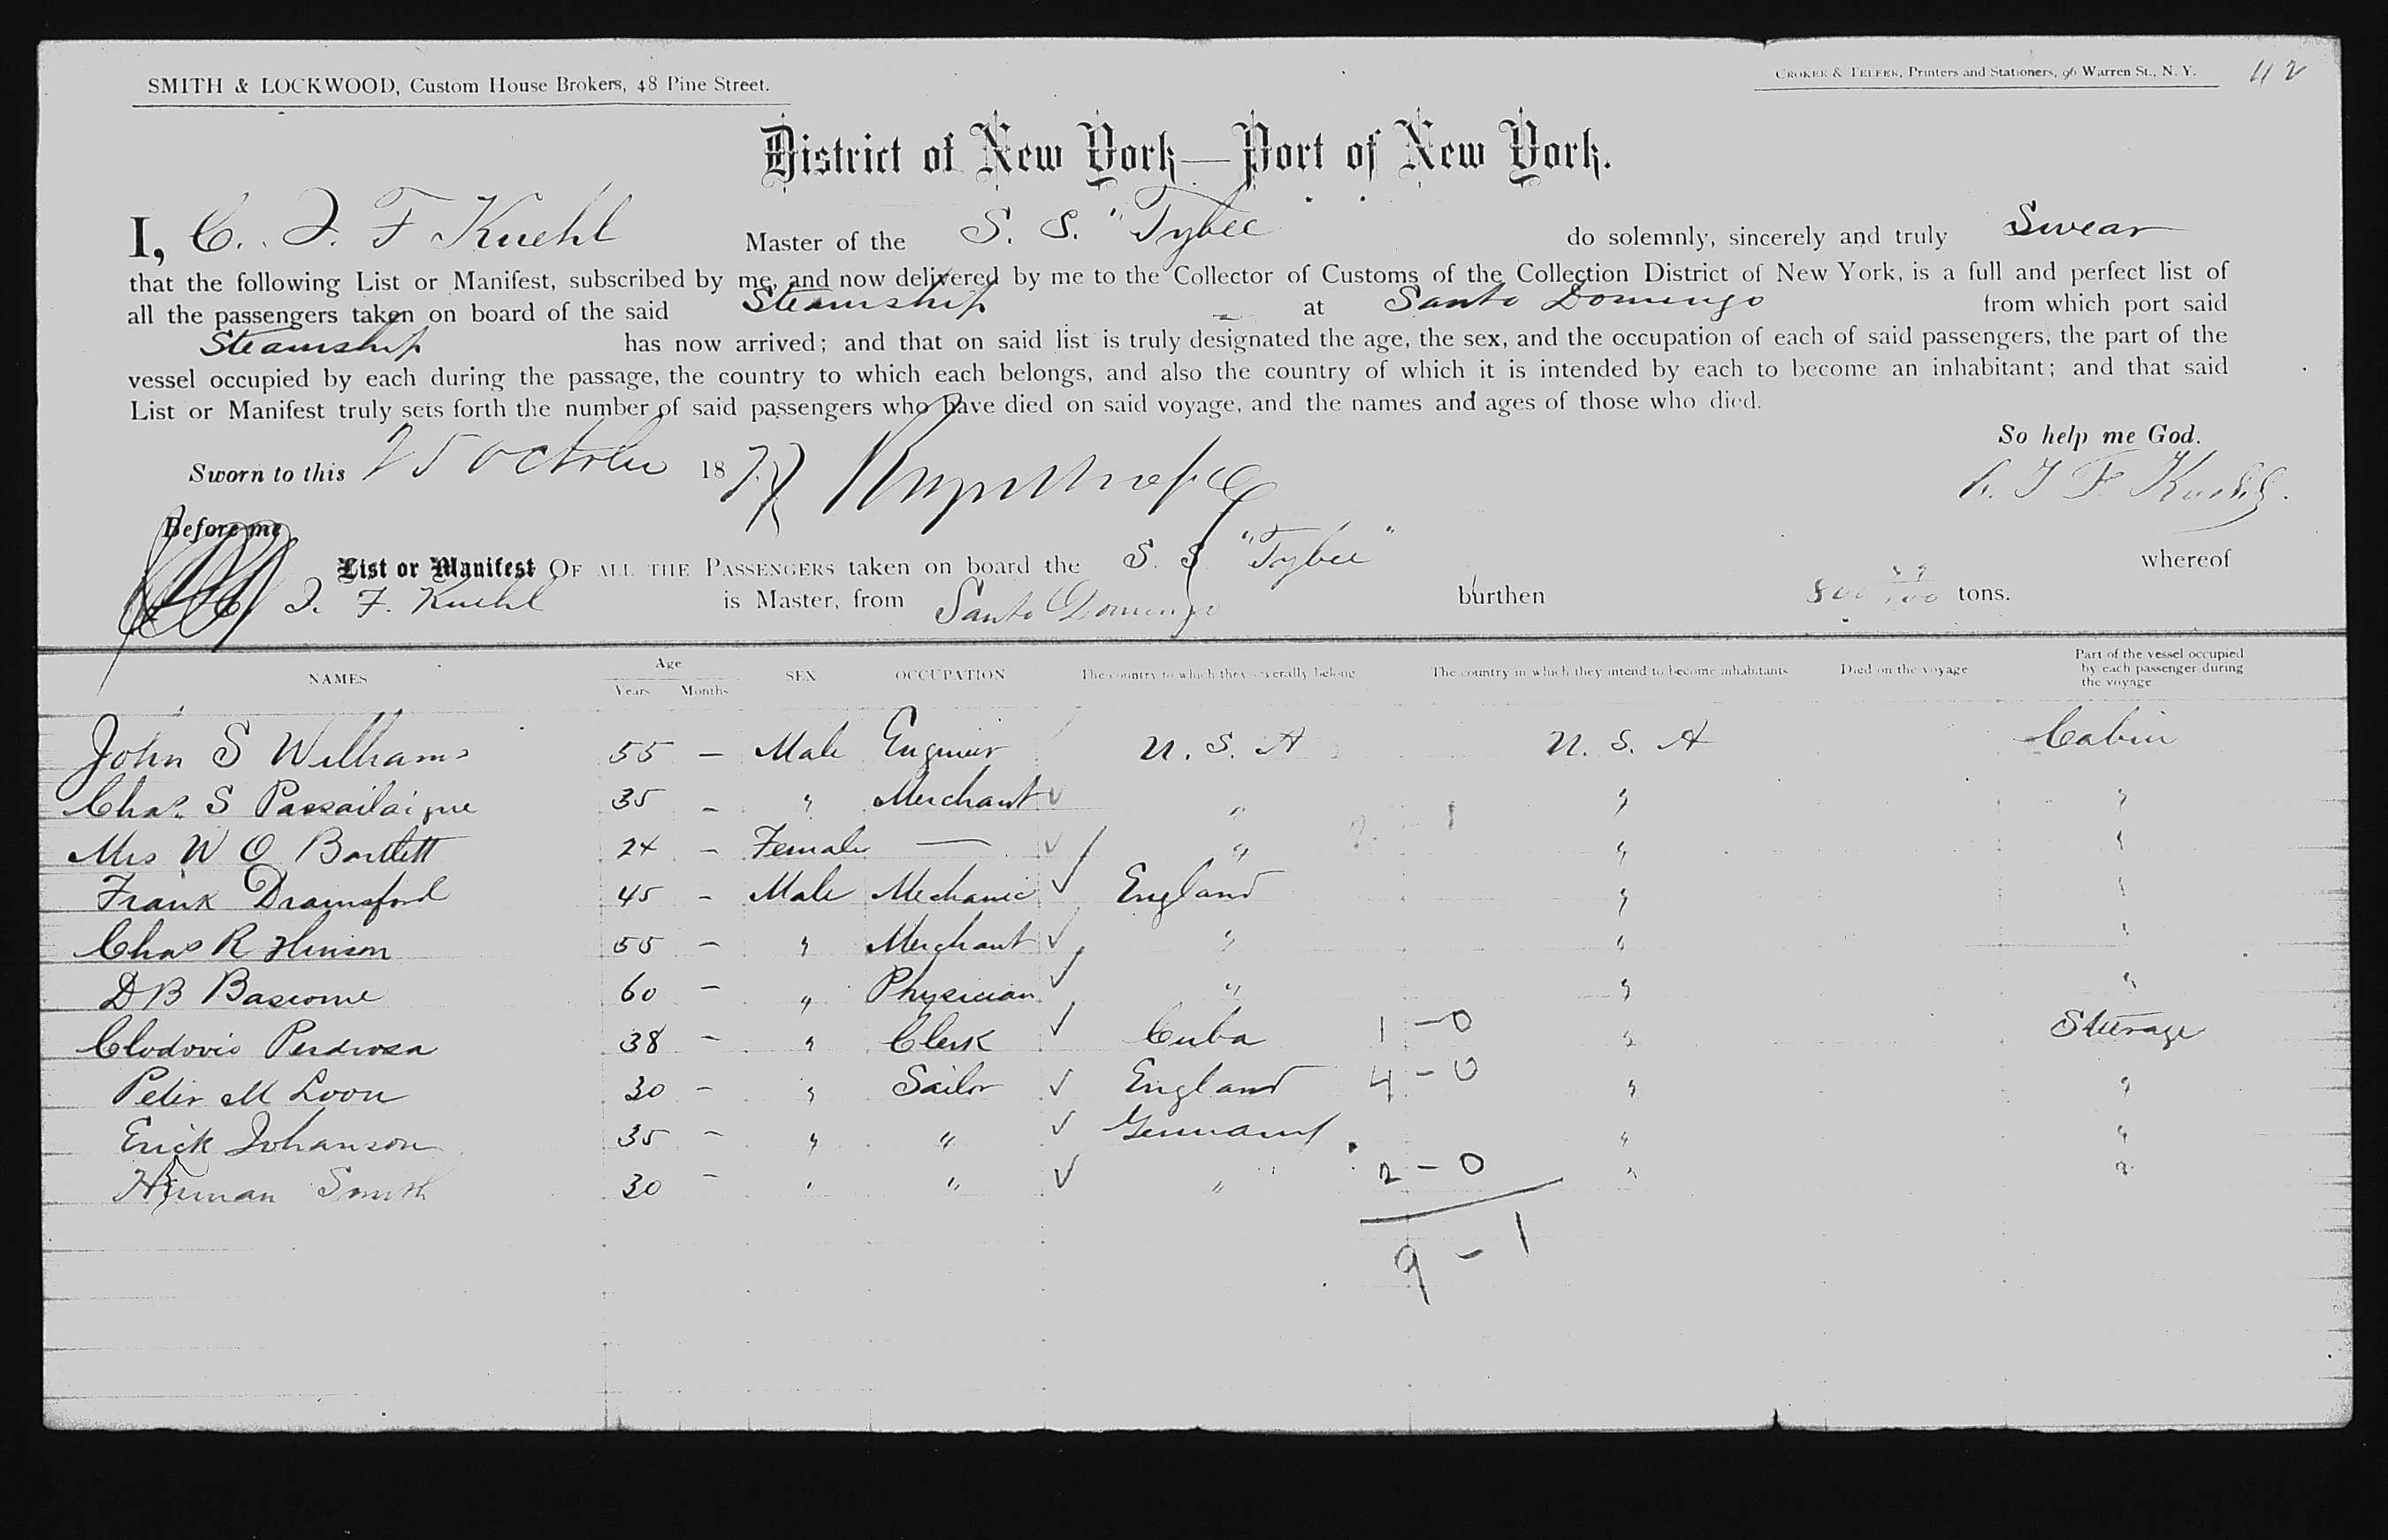 SMITH & LOCKWOOD, Custom House Brokers, 48 Pine Street.
CROKER & TELFER, Printers and Stationers, 96 Warren St., N. Y.
112
District of New York—Port of New York.
I, C. J. F Kuehl Master of the S. S. "Tybee do solemnly, sincerely and truly Swear
that the following List or Manifest, subscribed by me, and now delivered by me to the Collector of Customs of the Collection District of New York, is a full and perfect list of
all the passengers taken on board of the said Steamship at Santo Domingo from which port said
Steamship has now arrived; and that on said list is truly designated the age, the sex, and the occupation of each of said passengers, the part of the
vessel occupied by each during the passage, the country to which each belongs, and also the country of which it is intended by each to become an inhabitant; and that said
List or Manifest truly sets forth the number of said passengers who have died on said voyage, and the names and ages of those who died.
So help me God.
Sworn to this 25 October 187
C. J F Kuehl.
Before me
List or Manifest OF ALL THE PASSENGERS taken on board the S. S "Tybee" whereof
C J. F. Kuehl is Master, from Santo Domingo burthen tons.
NAMES Age Years Months SEX OCCUPATION The country to which they severally belong The country in which they intend to become inhabitants Died on the voyage Part of the vessel occupied by each passenger during the voyage
John S Williams 55 — Male Engineer U. S. A U. S. A Cabin
Chas. S Passailaigue 35 – " Merchant √ " " "
2 - 1
Mrs W O Bartlett 24 – Female — √ " " "
Frank Dramsford 45 – Male Mechanic √ England " "
Chas R Hinson 55 – " Merchant √ " " "
D B Bascome 60 – " Physician √ " " "
Clodovio Perdrosa 38 – " Clerk √ Cuba 1 – 0 " Steerage
Peter M Loon 30 – " Sailor √ England 4 – 0 " "
Erick Johanson 35 – " " √ Germany " "
Herman Smith 30 – " " √ " 2 – 0 " "
9 – 1